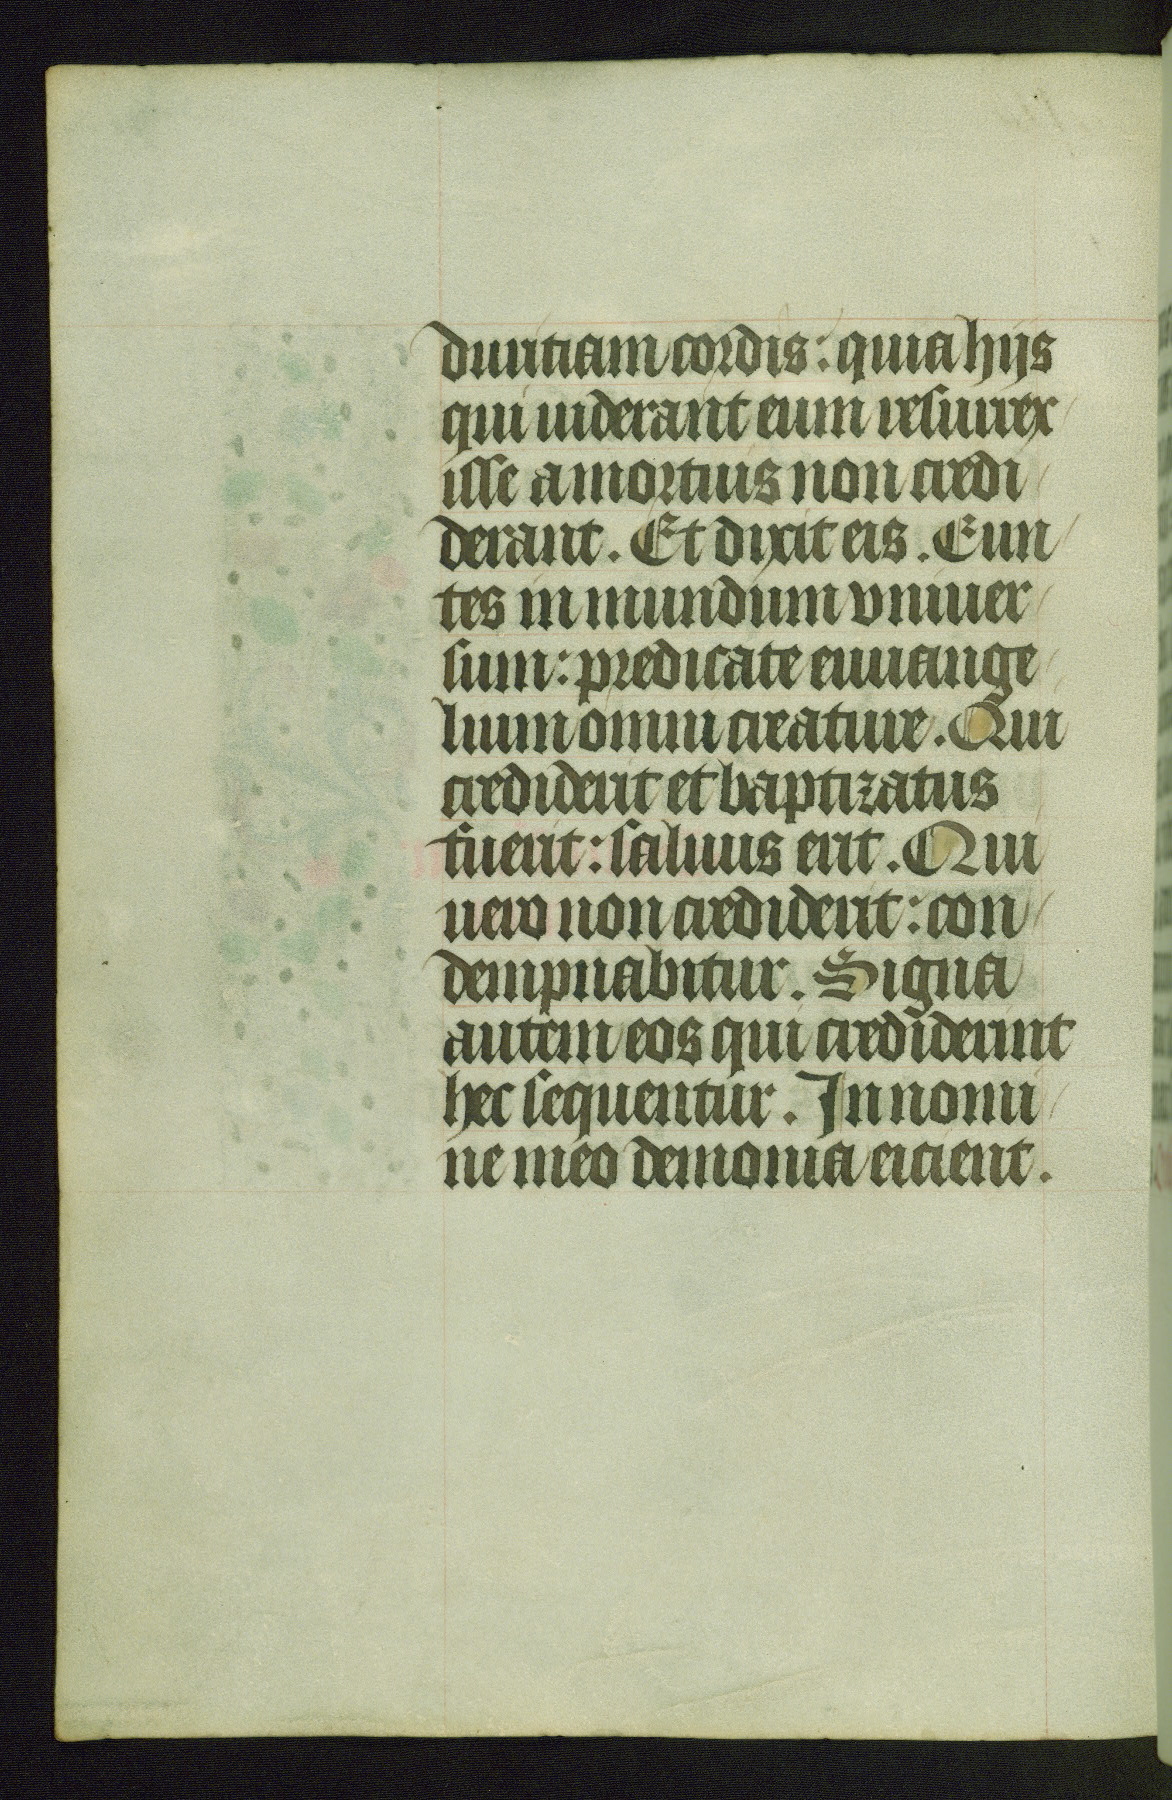 duritiam cordis: quia hijs
qui uiderant eum resurrex
isse a mortuis non credi
derant. Et dixit eis. Eun
tes in mundum vniuer
sum: predicate euuange
lium omni creature. Qui
crediderit et baptizatus
fuerit: saluus erit. Qui
uero non crediderit: con
dempnabitur. Signa
autem eos qui crediderint
hec sequentur. In nomi
ne meo demonia eicient.